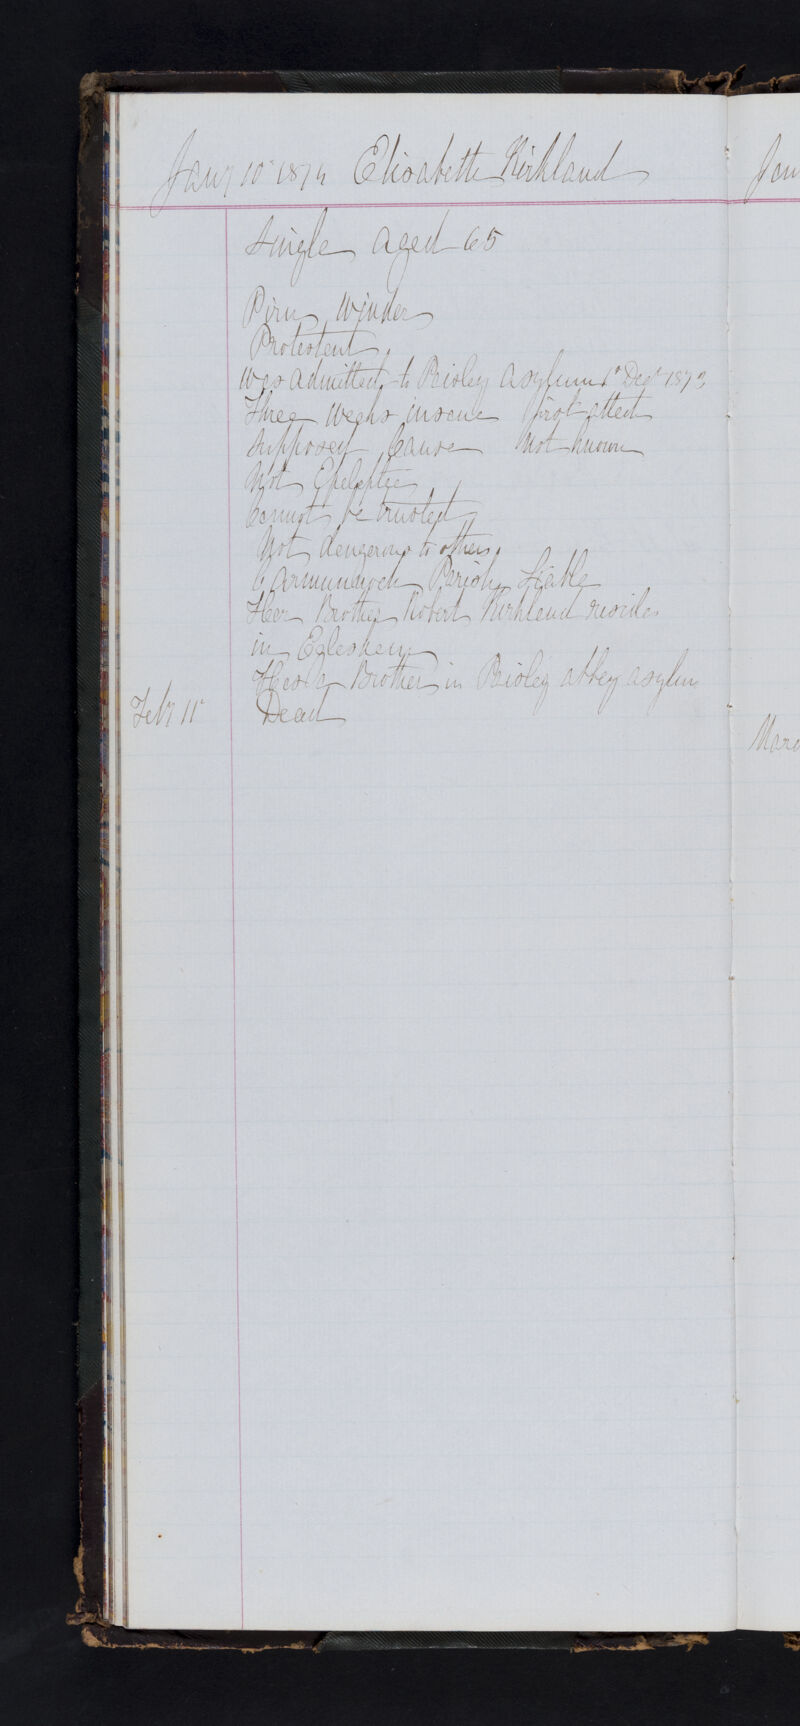 Jany 10th 1874 Elisabeth Kirkland
Single aged 65
Pirn Winder
Protestant
Was admitted to Paisley Asylum 1st Decr 1873
Three Weeks insane first attack
Supposed Cause Not known
Not Epeleptic
Cannot be trusted
Not dangerous to others
Carmunnock Parish Liable
Her Brother Robert Kirkland resides
in Eglesham
Has a Brother in Paisley abbey asylum
Feby 11th Dead
Jan
Marc